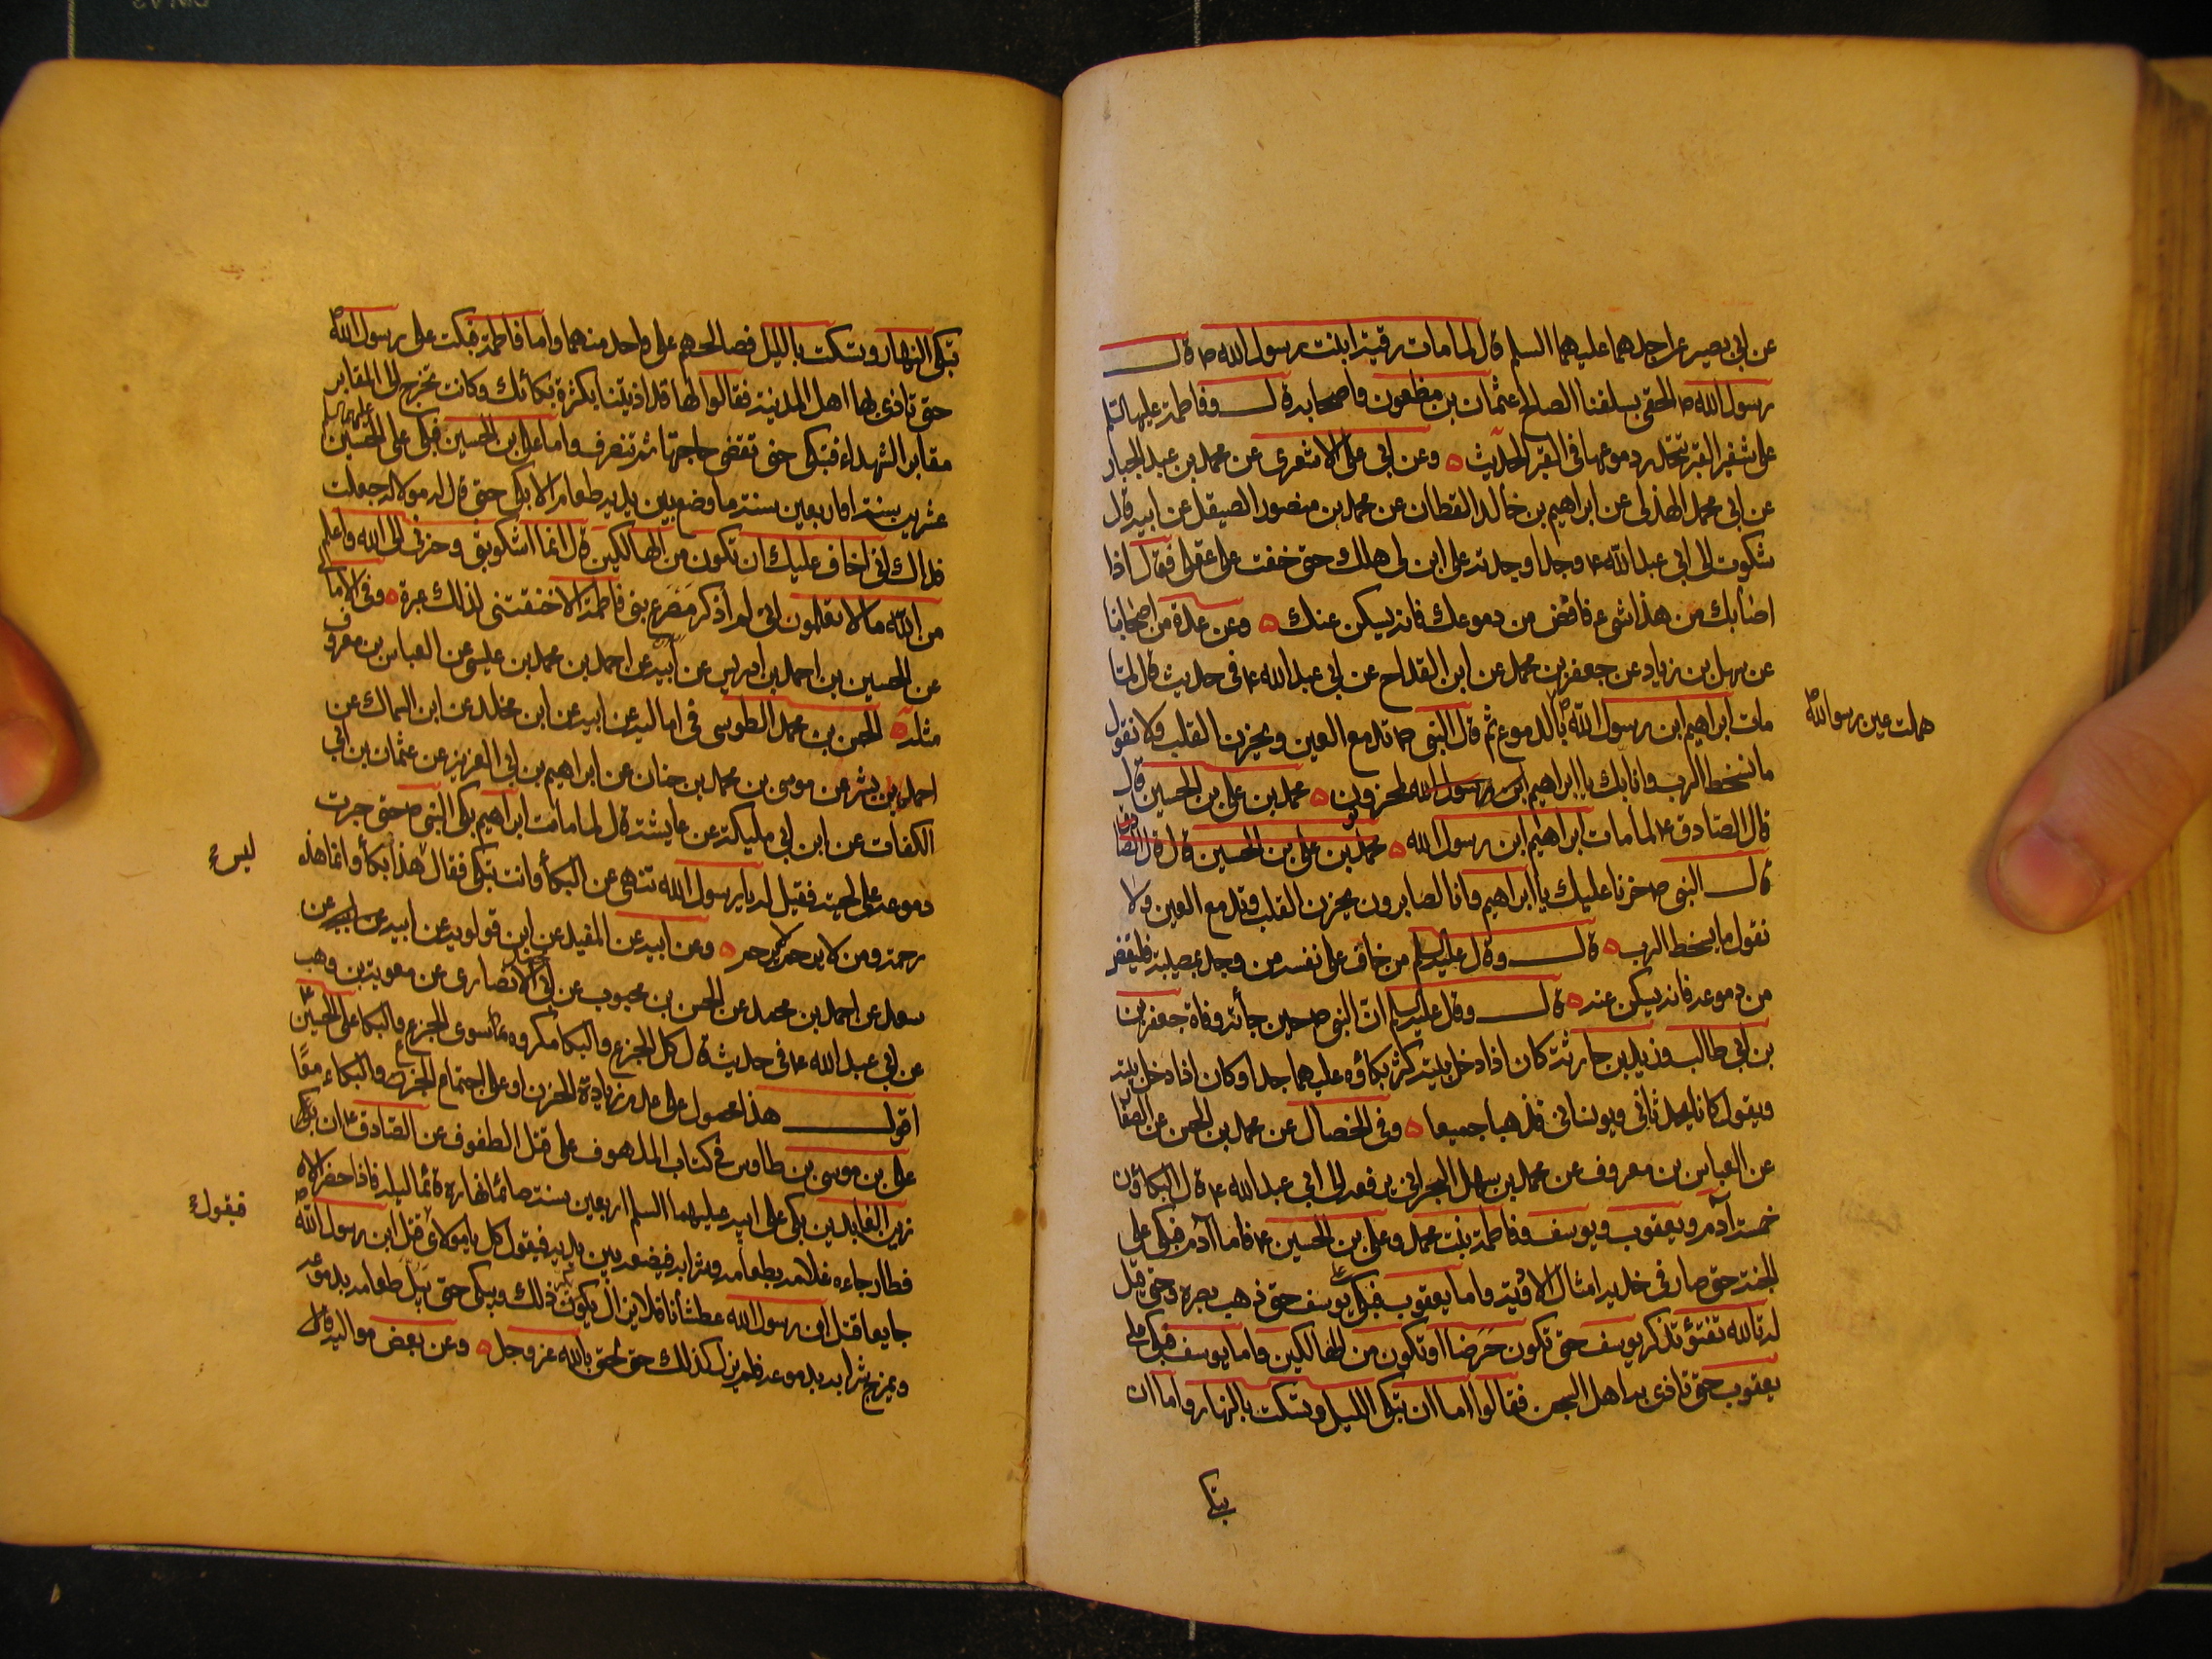 عن ابى بصير عن احدهما عليهما السلم قال لما ماتت رقية ابنت رسول الله ص قال
رسول الله ص الحقى بسلفنا الصالح عثمان بن مظعون واصحابه قال وفاطمة عليها السلم
على شفير القبر تنحدر دموعها فى القبر الحديث ه وعن ابى على الاشعرى عن محمد بن عبد الجبار
عن ابى محمد الهذلى عن ابراهيم بن خالد القطان عن محمد بن منصور الصيقل عن ابيه قال
شكوت الى ابى عبد الله ع وجدا وجدته على ابن لى هلك حتى خفت على عقلى فقال اذا
اصابك من هذا شىء فافض من دموعك فانه يسكن عنك ه وعن عدة من اصحابنا
عن سهل بن زياد عن جعفر بن محمد عن ابن القداح عن ابى عبد الله ع فى حديث قال لما
مات ابراهيم ابن رسول الله ص بالدموع ثم قال النبى ص تدمع العين ويحزن القلب ولا نقول
هملت عين رسول الله ص
ما يسخط الرب وانا بك يا ابراهيم ابن رسول الله لمحزونون ه محمد بن على بن الحسين قال
قال الصادق ع لما مات ابراهيم ابن رسول الله ه محمد بن على بن الحسين قال قال الصادق
قال النبى ص حزنا عليك يا ابراهيم وانا لصابرون يحزن القلب وتدمع العين ولا
نقول ما يسخط الرب ه قال وقال عليه السلم من خاف على نفسه من وجد بمصيبة فليفض
من دموعه فانه يسكن عنه ه قال وقال عليه السلم ان النبى ص حين جأته وفاة جعفر بن
بن ابى طالب وزيد بن حارثة كان اذا دخل بيته كثر بكأوه عليهما جدا وكان اذا دخل بيته
ويقول كانا يحدثانى ويونسانى فذهبا جميعا ه وفى الخصال عن محمد بن الحسن عن الصفا
عن العباس بن معروف عن محمد بن سهل البحرانى يرفعه الى ابى عبد الله ع قال البكاؤن
خمسة آدم ويعقوب ويوسف وفاطمة بنت محمد وعلى بن الحسين ع فاما آدم فبكى على
الجنة حتى صار فى خديه امثال الاودية واما يعقوب فبكى على يوسف حتى ذهب بصره وحتى قيل
له تالله تفتؤ تذكر يوسف حتى تكون حَرَضا او تكون من الهالكين واما يوسف فبكى على
يعقوب حتى تاذى به اهل السجن فقالوا اما ان تبكى الليل وتسكت بالنهار واما ان
تبكى
تبكى النهار وتسكت بالليل فصالحهم على واحد منهما واما فاطمة فبكت على رسول الله ص
حتى تاذى بها اهل المدينة فقالوا لها قد اذيتنا بكثرة بكائك وكانت تخرج الى المقابر
مقابر الشهداء فتبكى حتى تقضى حاجتها ثم تنصرف واما على بن الحسين فبكى على الحسين عليهما السلم
عشرين سنة او اربعين سنة ما وضع بين يديه طعام الا بكى حتى قال له مولا له جعلت
فداك انى اخاف عليك ان تكون من الهالكين قال انما اشكو بثى وحزنى الى الله واعلم
من الله ما لا تعلمون انى لم اذكر مَصرَع بنى فاطمة الا خنقتنى لذلك عبرة ه وفى الاما
عن الحسين بن احمد بن ادريس عن ابيه عن احمد بن محمد بن عيسى عن العباس بن معروف
مثله ه الحسن بن محمد الطوسى فى اماليه عن ابيه عن ابن مخلد عن ابن السماك عن
احمد بن بشر عن موسى بن محمد بن حنان عن ابراهيم بن ابى العزيز عن عثمان بن ابى
الكفات عن ابن ابى مليكة عن عايشة قال لما مات ابراهيم بكى النبى ص حتى جرت
دموعه على لحيته فقيل له يا رسول الله تنهى عن البكأ وانت تبكى فقال هذا بكأ وانما هذه
ليس
رحمة ومن لا يرحم لا يرحم ه وعن ابيه عن المفيد عن ابن قولويه عن ابيه عن
سعد عن احمد بن محمد عن الحسن بن محبوب عن ابى محمد الانصارى عن معوية بن وهب
عن ابى عبد الله ع فى حديث قال كل الجزع والبكا مكروه ما سوى الجزع والبكا على الحسين ع
اقول هذا محمول على عدم زيادة الحزن او على اجتماع الجزع والبكاء معًا
على بن موسى بن طاوس فى كتاب الملهوف على قتل الطفوف عن الصادق ع ان
زين العابدين بكى على ابيه عليهما السلم اربعين سنة صائما نهاره قائما ليله فاذا حضر الا
فطار جاءه غلامه بطعامه وشرابه فيضعه بين يديه فيقول كل يا مولاى قتل ابن رسول الله ص
فيقول
جايعا قتل ابن رسول الله عطشانا فلا يزال يكرر ذلك ويبكى حتى يبل طعامه بدموعه
ويمزج شرابه بدموعه فلم يزل كذلك حتى لحق بالله عز وجل ه وعن بعض مواليه قال